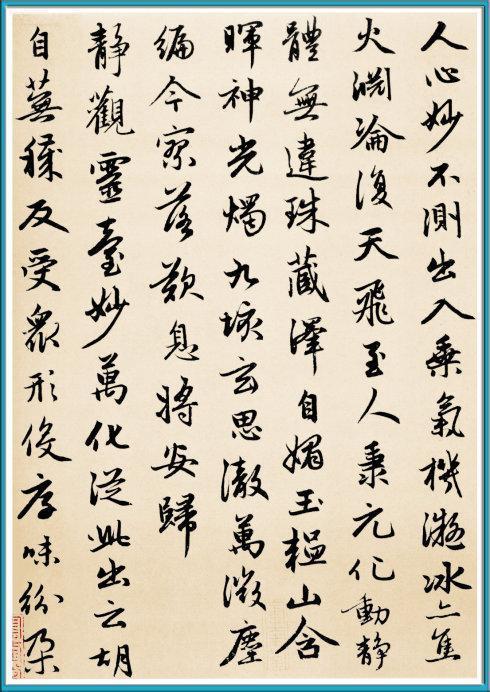 人心妙不測出入乗氣機凝冰亦焦
火淵淪復天飛至人秉元化動静
體無違珠藏澤自媚玉韞山含
暉神光燭九垓玄思澈萬微塵
編今寥落歎息將安歸
静觀靈臺妙萬化從此出云胡
自蕪穢反受衆形役厚味紛朶